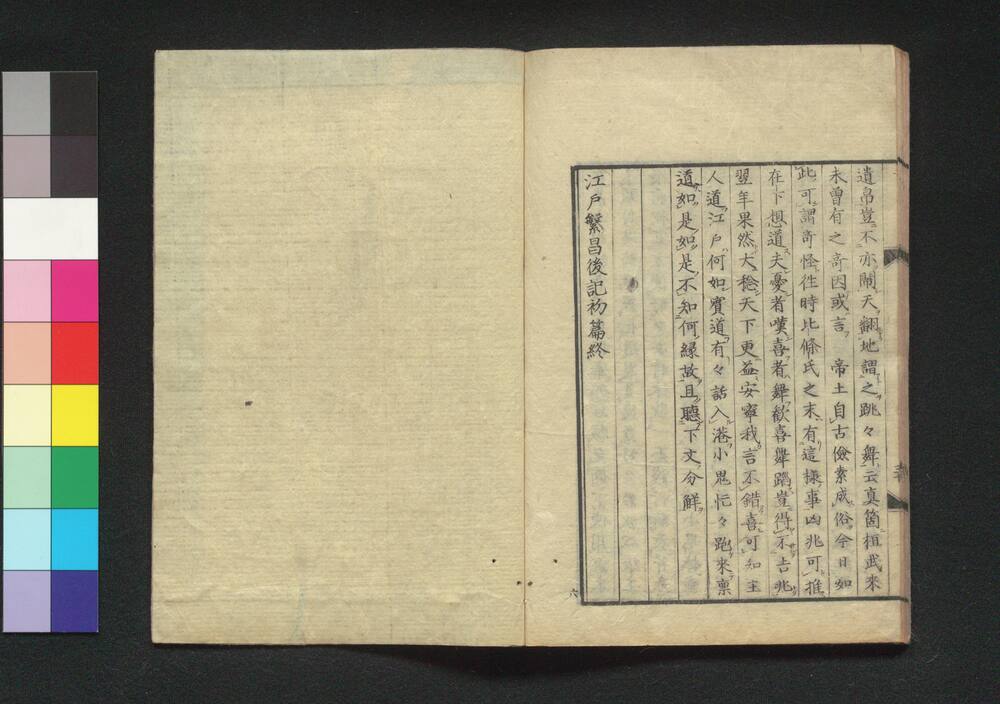 遺帛豈不亦鬧天翻地謂之跳々舞云真箇桓武来
未曾有之奇因或言　帝土自古儉素成俗今日如
此可謂奇怪徃時北條氏之末有這様事凶兆可推
在下想道夫憂者嘆喜者舞歓喜舞蹈豈得不吉兆
翌年果然大稔天下更益安寧我言不錯喜可知主
人道江戸何如賓道有々話入港小鬼忙々跑来禀
道如是如是不知何縁故且聽下文分解
江戸繁昌後記初篇終
六